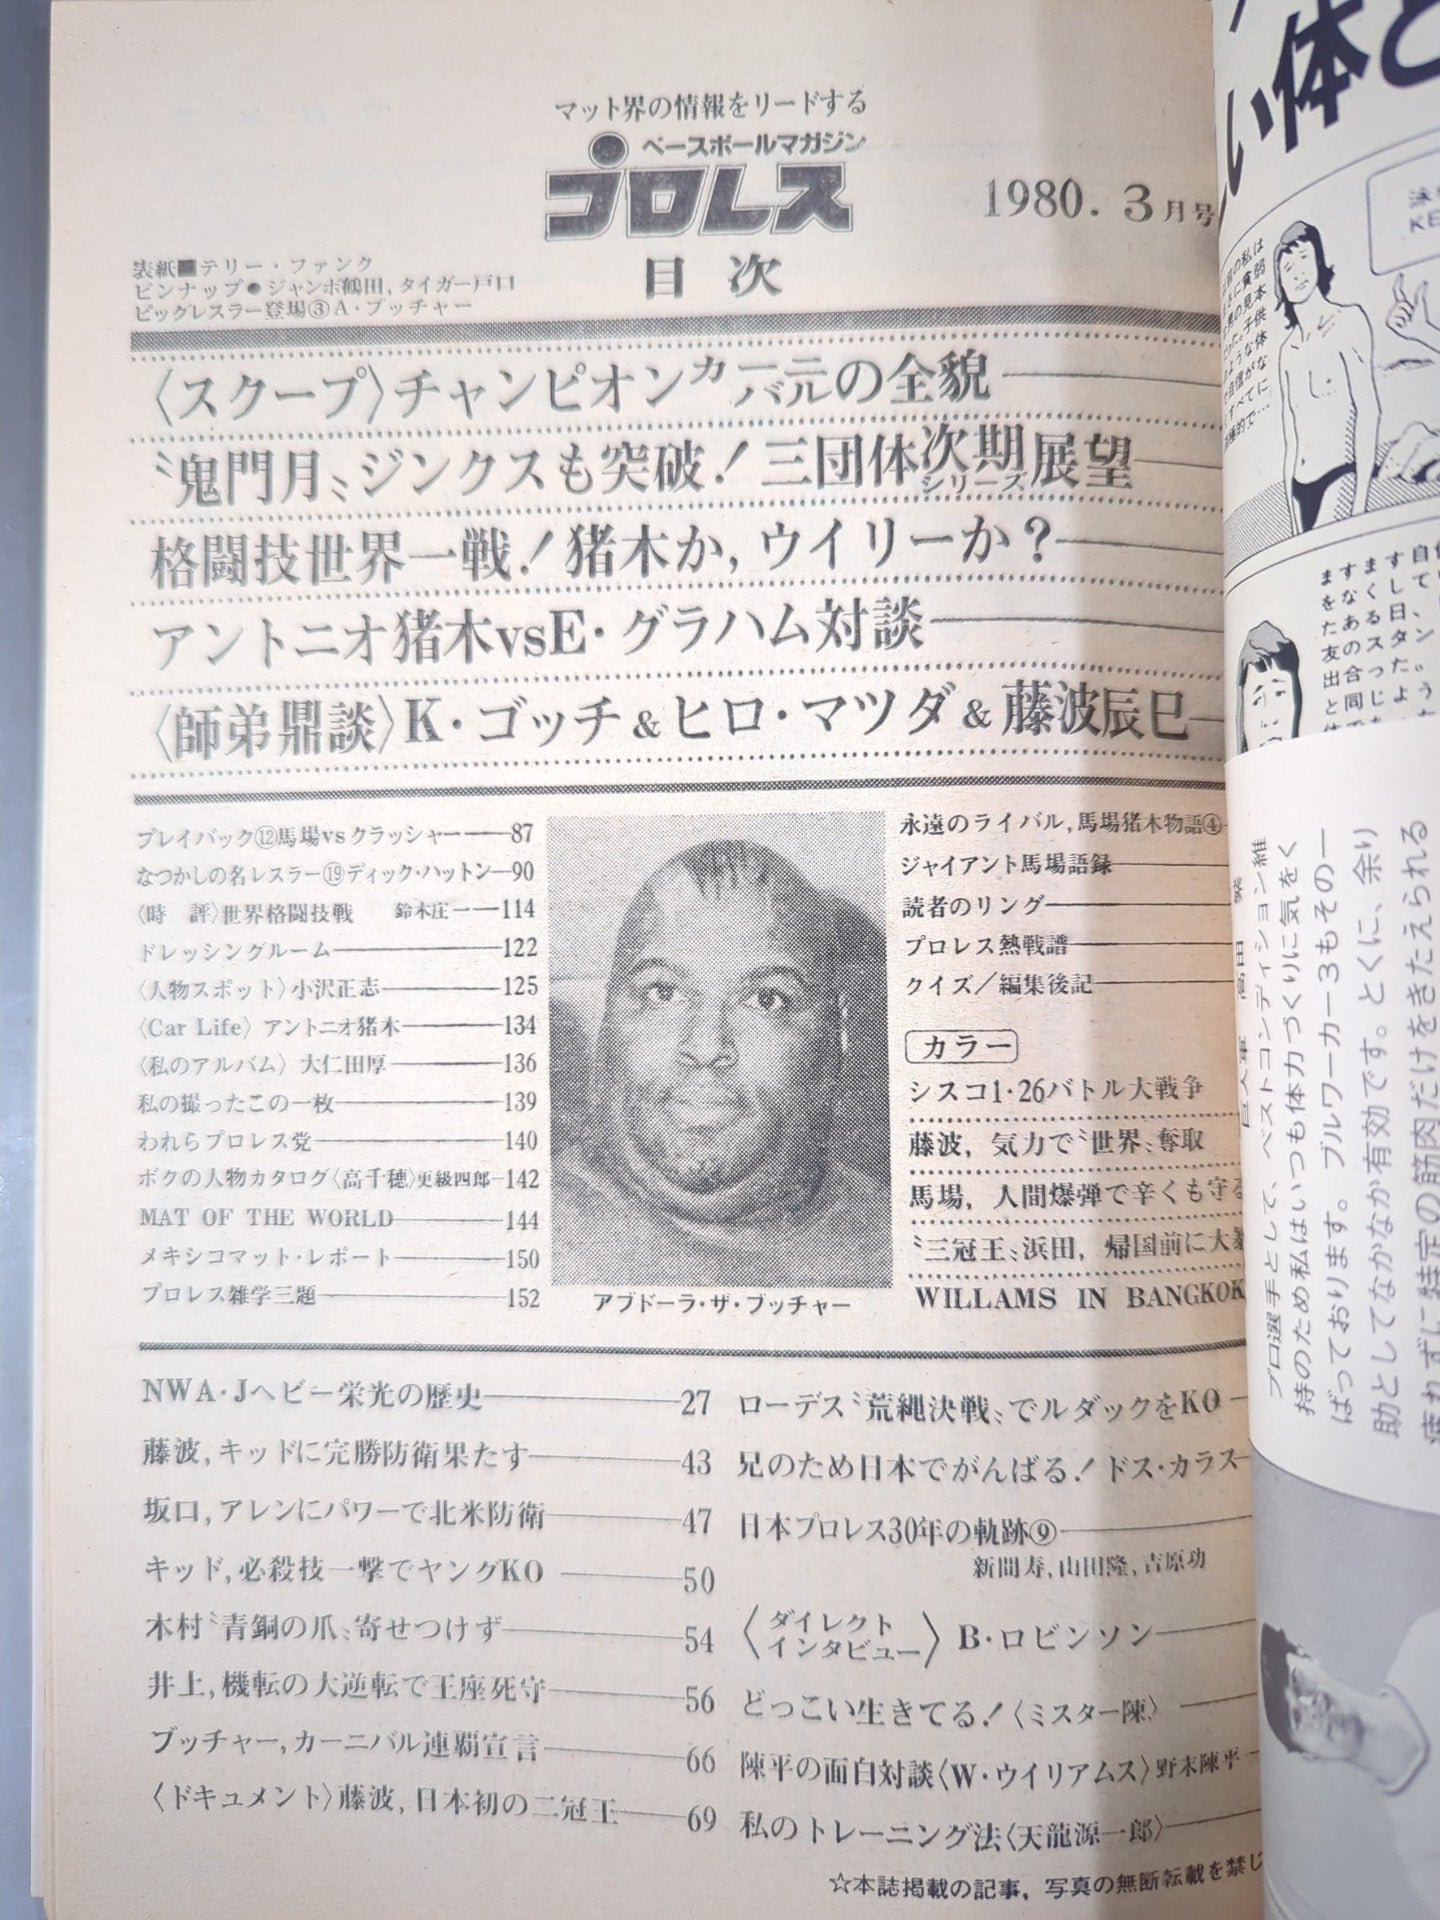 マット界の情報をリードする
ベースボールマガジン
プロレス
1980. 3月号
目次
表紙■テリー・ファンク
ピンナップ●ジャンボ鶴田, タイガー戸口
ビッグレスラー登場③A・ブッチャー
〈スクープ〉チャンピオンカーバ元の全貌
〝鬼門月〟ジンクスも突破！三団体次期シリーズ展望
格闘技世界一戦！猪木か, ウイリーか？
アントニオ猪木vsE・グラハム対談
〈師弟鼎談〉K・ゴッチ&ヒロ・マツダ&藤波辰巳
プレイバック⑫馬場vsクラッシャー 87
なつかしの名レスラー⑲ディック・ハットン 90
〈時 評〉世界格闘技戦 鈴木庄一 114
ドレッシングルーム 122
〈人物スポット〉小沢正志 125
〈Car Life〉アントニオ猪木 134
〈私のアルバム〉大仁田厚 136
私の撮ったこの一枚 139
われらプロレス党 140
ボクの人物カタログ〈高千穂〉更級四郎 142
MAT OF THE WORLD 144
メキシコマット・レポート 150
プロレス雑学三題 152
アブドーラ・ザ・ブッチャー
永遠のライバル, 馬場猪木物語④
ジャイアント馬場語録
読者のリング
プロレス熱戦譜
クイズ／編集後記
カラー
シスコ1・26バトル大戦争
藤波, 気力で〝世界〟奪取
馬場, 人間爆弾で辛くも守る
〝三冠王〟浜田, 帰国前に大暴
WILLAMS IN BANGKOK
NWA・Jヘビー栄光の歴史 27
藤波, キッドに完勝防衛果たす 43
坂口, アレンにパワーで北米防衛 47
キッド, 必殺技一撃でヤングKO 50
木村〝青銅の爪〟寄せつけず 54
井上, 機転の大逆転で王座死守 56
ブッチャー, カーニバル連覇宣言 66
〈ドキュメント〉藤波, 日本初の二冠王 69
ローデス〝荒縄決戦〟でルダックをKO
兄のため日本でがんばる！ドス・カラス
日本プロレス30年の軌跡⑨
新間寿, 山田隆, 吉原功
〈ダイレクトインタビュー〉B・ロビンソン
どっこい生きてる！〈ミスター陳〉
陳平の面白対談〈W・ウイリアムス〉野末陳平
私のトレーニング法〈天龍源一郎〉
☆本誌掲載の記事, 写真の無断転載を禁じ
い体と
プロ選手として、ベストコンディション維
持のため私はいつも体力づくりに気をく
ばっております。ブルワーカー3もその一
助としてなかなか有効です。とくに、余り
疲れずに特定の筋肉だけをきたえられる